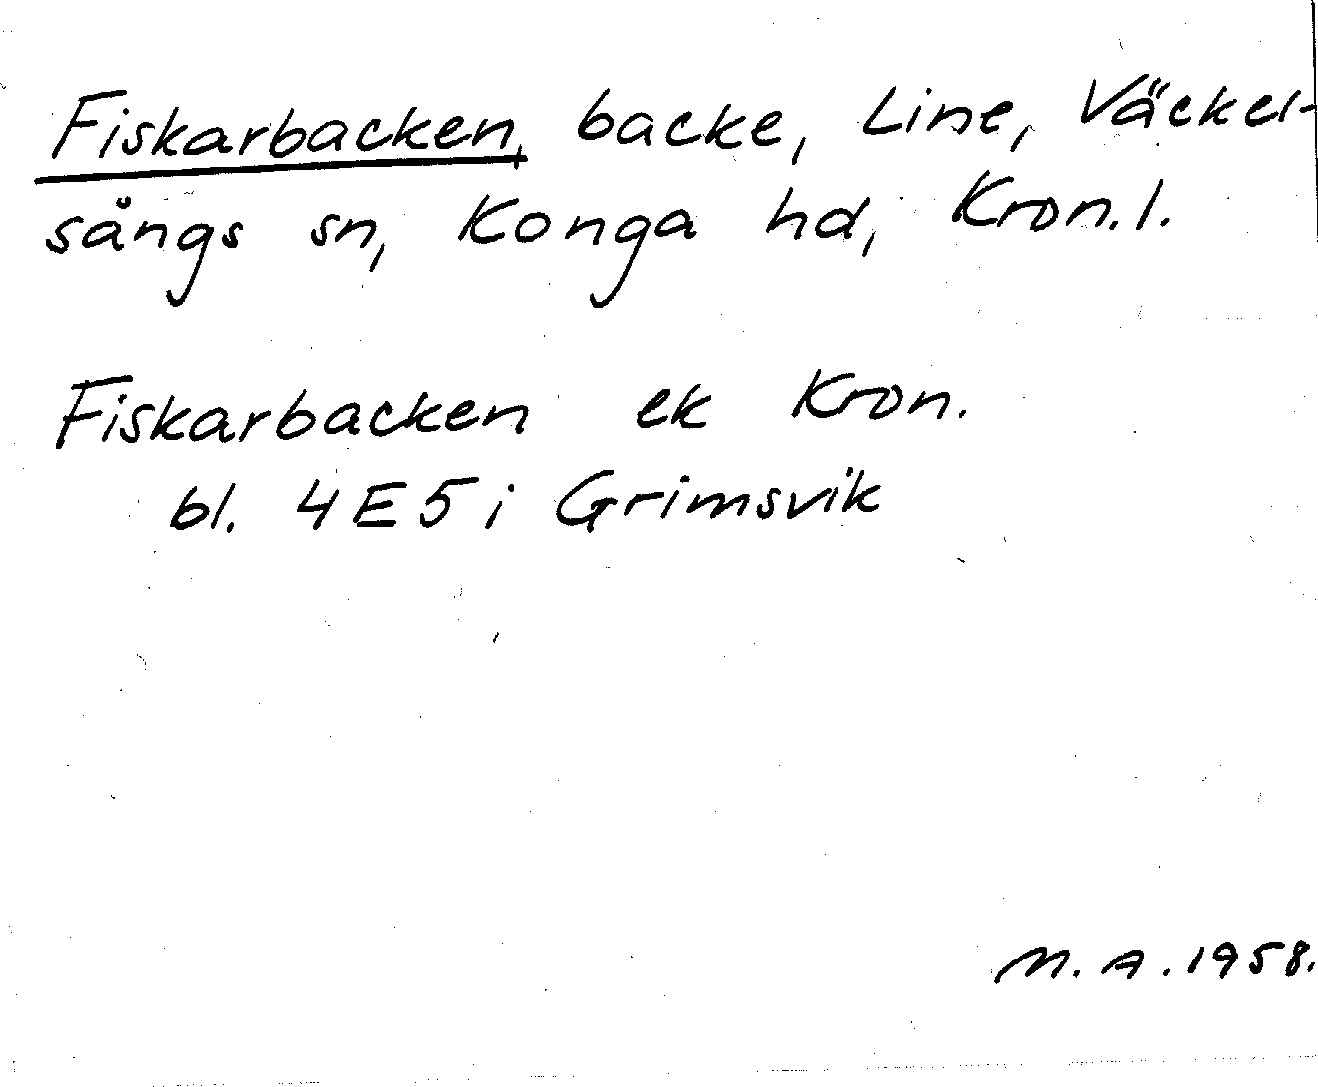 Fiskarbacken, backe, Line, Väckel-
sångs sn, Konga hd, Kron. l.
Fiskarbacken ek Kron.
bl. 4E5 i Grimsvik
M. A. 1958.